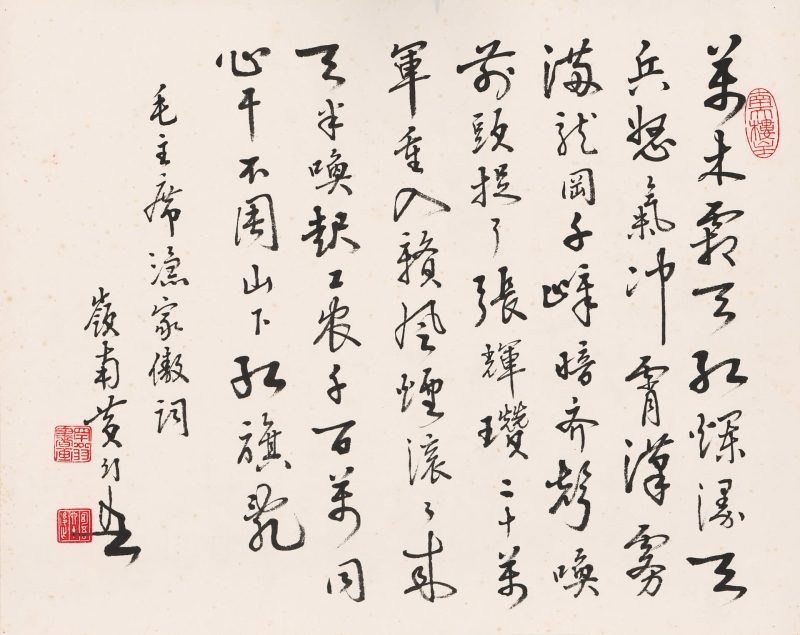 萬木霜天紅爛漫天
兵怒氣冲霄漢霧
滿龍岡千嶂暗齐聲喚
前頭捉了張輝瓚二十萬
軍重入贛風煙滚々来
天半喚起工农千百萬同
心干不周山下紅旗亂
毛主席漁家傲詞
嶺南黄